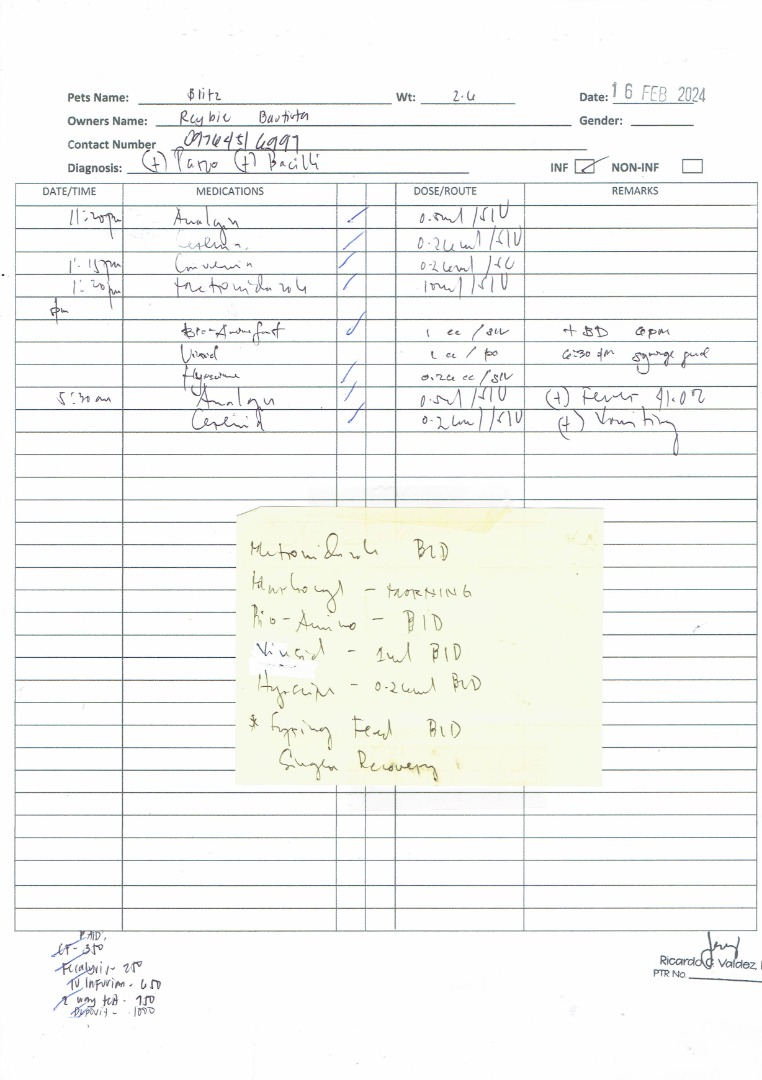 Pets Name: Blitz Wt: 2.6 Date: 16 FEB 2024
Owners Name: Reybie Bautista Gender:
Contact Number
Diagnosis: (+) Parvo (+) Bacilli INF ✓ NON-INF
DATE/TIME MEDICATIONS DOSE/ROUTE REMARKS
11:20pm Analgin ✓ 0.5ml /SIV
✓ 0.26ml /SIV
1:15pm Convenia ✓ 0.26ml /SC
1:20pm Metronidazole ✓ 10ml /SIV
pm
✓ 1 cc / SIV + BD 6pm
1 cc / PO 6:30 pm syringe feed
Hyoscine ✓ 0.26 cc / SIV
5:30 am Analgin ✓ 0.5ml /SIV (+) Fever
✓ 0.26ml /SIV (+) Vomiting
Metronidazole BID
Marbocyl - MORNING
Bio-Amino - BID
- 1ml BID
- 0.26ml BID
* Feed BID
Recovery
PAID:
CF - 350
Fecalysis - 250
IV Infusion - 650
2 way test - 950
Deposit - 1000
Ricardo C. Valdez,
PTR No